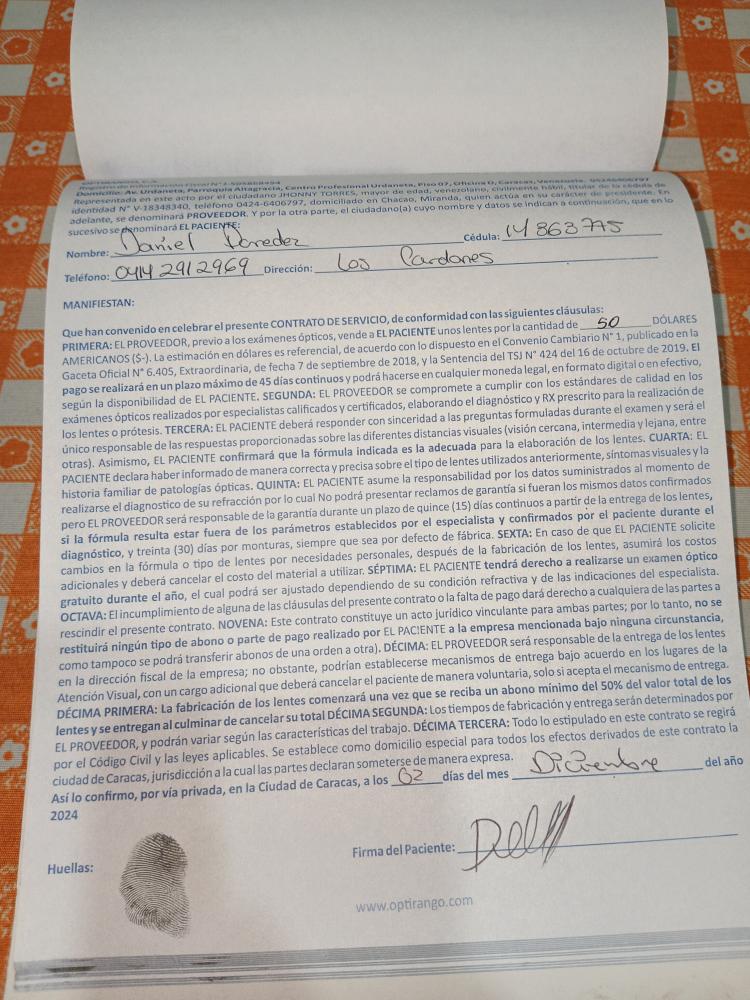 Domicilio: Av. Urdaneta, Parroquia Altagracia, Centro Profesional Urdaneta, Piso 07, Oficina D, Caracas, Venezuela.
Representada en este acto por el ciudadano JHONNY TORRES, mayor de edad, venezolano, civilmente hábil, titular de la cédula de
identidad N° V-18348340, teléfono 0424-6406797, domiciliado en Chacao, Miranda, quien actúa en su carácter de presidente. En
adelante, se denominará PROVEEDOR. Y por la otra parte, el ciudadano(a) cuyo nombre y datos se indican a continuación, que en lo
sucesivo se denominará EL PACIENTE:
Nombre: Daniel Paredez Cédula: 14863775
Teléfono: 0414 2912969 Dirección: Los Cardones
MANIFIESTAN:
Que han convenido en celebrar el presente CONTRATO DE SERVICIO, de conformidad con las siguientes cláusulas:
PRIMERA: EL PROVEEDOR, previo a los exámenes ópticos, vende a EL PACIENTE unos lentes por la cantidad de 50 DÓLARES
AMERICANOS ($-). La estimación en dólares es referencial, de acuerdo con lo dispuesto en el Convenio Cambiario N° 1, publicado en la
Gaceta Oficial N° 6.405, Extraordinaria, de fecha 7 de septiembre de 2018, y la Sentencia del TSJ N° 424 del 16 de octubre de 2019. El
pago se realizará en un plazo máximo de 45 días continuos y podrá hacerse en cualquier moneda legal, en formato digital o en efectivo,
según la disponibilidad de EL PACIENTE. SEGUNDA: EL PROVEEDOR se compromete a cumplir con los estándares de calidad en los
exámenes ópticos realizados por especialistas calificados y certificados, elaborando el diagnóstico y RX prescrito para la realización de
los lentes o prótesis. TERCERA: EL PACIENTE deberá responder con sinceridad a las preguntas formuladas durante el examen y será el
único responsable de las respuestas proporcionadas sobre las diferentes distancias visuales (visión cercana, intermedia y lejana, entre
otras). Asimismo, EL PACIENTE confirmará que la fórmula indicada es la adecuada para la elaboración de los lentes. CUARTA: EL
PACIENTE declara haber informado de manera correcta y precisa sobre el tipo de lentes utilizados anteriormente, síntomas visuales y la
historia familiar de patologías ópticas. QUINTA: EL PACIENTE asume la responsabilidad por los datos suministrados al momento de
realizarse el diagnostico de su refracción por lo cual No podrá presentar reclamos de garantía si fueran los mismos datos confirmados
pero EL PROVEEDOR será responsable de la garantía durante un plazo de quince (15) días continuos a partir de la entrega de los lentes,
si la fórmula resulta estar fuera de los parámetros establecidos por el especialista y confirmados por el paciente durante el
diagnóstico, y treinta (30) días por monturas, siempre que sea por defecto de fábrica. SEXTA: En caso de que EL PACIENTE solicite
cambios en la fórmula o tipo de lentes por necesidades personales, después de la fabricación de los lentes, asumirá los costos
adicionales y deberá cancelar el costo del material a utilizar. SÉPTIMA: EL PACIENTE tendrá derecho a realizarse un examen óptico
gratuito durante el año, el cual podrá ser ajustado dependiendo de su condición refractiva y de las indicaciones del especialista.
OCTAVA: El incumplimiento de alguna de las cláusulas del presente contrato o la falta de pago dará derecho a cualquiera de las partes a
rescindir el presente contrato. NOVENA: Este contrato constituye un acto jurídico vinculante para ambas partes; por lo tanto, no se
restituirá ningún tipo de abono o parte de pago realizado por EL PACIENTE a la empresa mencionada bajo ninguna circunstancia,
como tampoco se podrá transferir abonos de una orden a otra). DÉCIMA: EL PROVEEDOR será responsable de la entrega de los lentes
en la dirección fiscal de la empresa; no obstante, podrían establecerse mecanismos de entrega bajo acuerdo en los lugares de la
Atención Visual, con un cargo adicional que deberá cancelar el paciente de manera voluntaria, solo si acepta el mecanismo de entrega.
DÉCIMA PRIMERA: La fabricación de los lentes comenzará una vez que se reciba un abono mínimo del 50% del valor total de los
lentes y se entregan al culminar de cancelar su total DÉCIMA SEGUNDA: Los tiempos de fabricación y entrega serán determinados por
EL PROVEEDOR, y podrán variar según las características del trabajo. DÉCIMA TERCERA: Todo lo estipulado en este contrato se regirá
por el Código Civil y las leyes aplicables. Se establece como domicilio especial para todos los efectos derivados de este contrato la
ciudad de Caracas, jurisdicción a la cual las partes declaran someterse de manera expresa.
Así lo confirmo, por vía privada, en la Ciudad de Caracas, a los 02 días del mes Diciembre del año
2024
Huellas: Firma del Paciente:
www.optirango.com